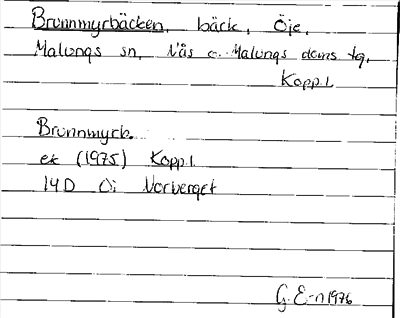 Brunnmyrbäcken, bäck, Öje,
Malungs sn, Nås o. Malungs doms tg,
Kopp.l.
Brunnmyrb.
ek (1975) Kopp.l.
14D Öi Norberget
G. E-n 1976